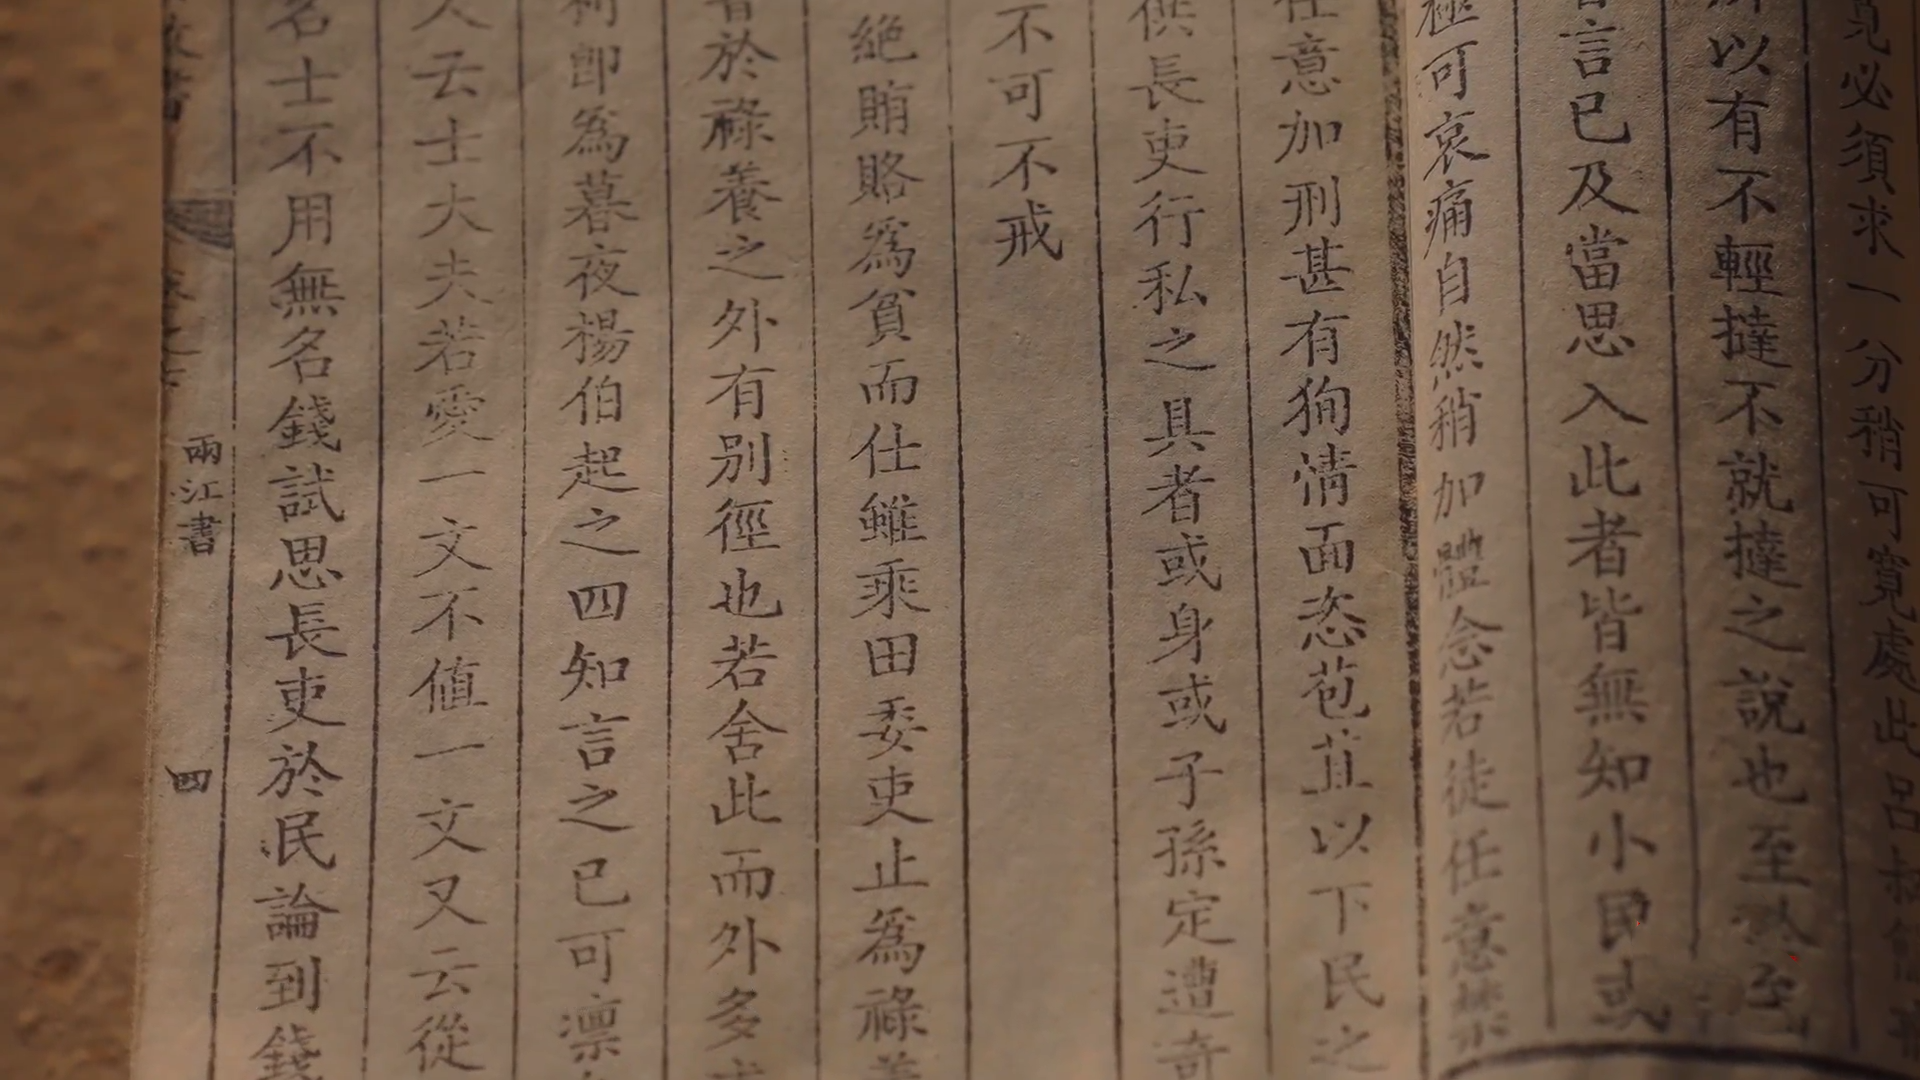 必須求一分稍可寬處此呂
以有不輕撻不就撻之說也至
言已及當思入此者皆無知小民或
可哀痛自然稍加體念若徒任意
任意加刑甚有狥情面恣苞苴以下民之
供長吏行私之具者或身或子孫定遭奇
不可不戒
絶賄賂為貧而仕雖乘田委吏止為祿養
者於祿養之外有別徑也若舍此而外多
何卽為暮夜楊伯起之四知言之已可凛
人云士大夫若愛一文不值一文又云從
名士不用無名錢試思長吏於民論到錢
兩江書
四